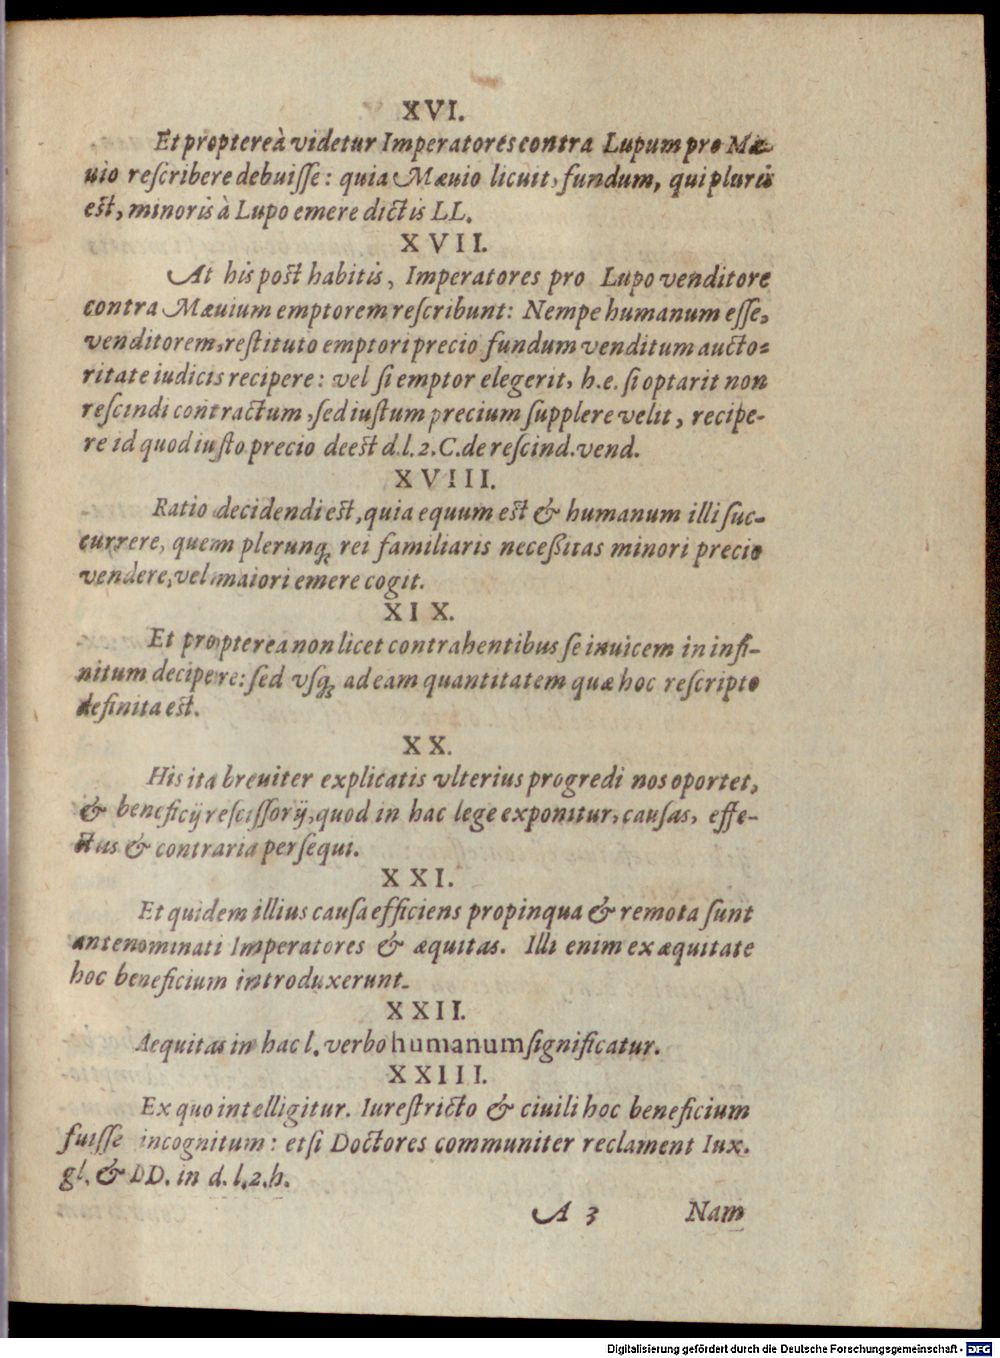 XVI.
Et proptereà videtur Imperatores contra Lupum pro Mæ-
uio reſcribere debuiſſe: quia Mæuio licuit, fundum, qui pluris
est, minoris à Lupo emere dictis LL.
XVII.
At his post habitis, Imperatores pro Lupo venditore
contra Mæuium emptorem reſcribunt: Nempe humanum eſſe,
venditorem, reſtituto emptori precio fundum venditum aucto=
ritate iudicis recipere: vel ſi emptor elegerit, h.e. ſi optarit non
reſcindi contractum, ſed iuſtum precium ſupplere velit, recipe-
re id quod iuſto precio deest d.l.2.C.de reſcind.vend.
XVIII.
Ratio decidendi est, quia equum est & humanum illi ſuc-
currere, quem plerunq; rei familiaris neceßitas minori precio
vendere, vel maiori emere cogit.
XIX.
Et propterea non licet contrahentibus ſe inuicem in infi-
nitum decipere: ſed vſq; ad eam quantitatem quæ hoc reſcripto
definita est.
XX.
His ita breuiter explicatis vlterius progredi nos oportet,
& beneficij reſciſſorij, quod in hac lege exponitur, cauſas, effe-
ctus & contraria perſequi.
XXI.
Et quidem illius cauſa efficiens propinqua & remota ſunt
antenominati Imperatores & æquitas. Illi enim ex æquitate
hoc beneficium introduxerunt.
XXII.
Aequitas in hac l. verbo humanum ſignificatur.
XXIII.
Ex quo intelligitur. Iure ſtricto & ciuili hoc beneficium
fuiſſe incognitum: etſi Doctores communiter reclament Iux.
gl. & DD. in d. l.2.h.
A 3 Nam
Digitalisierung gefördert durch die Deutsche Forschungsgemeinschaft - DFG